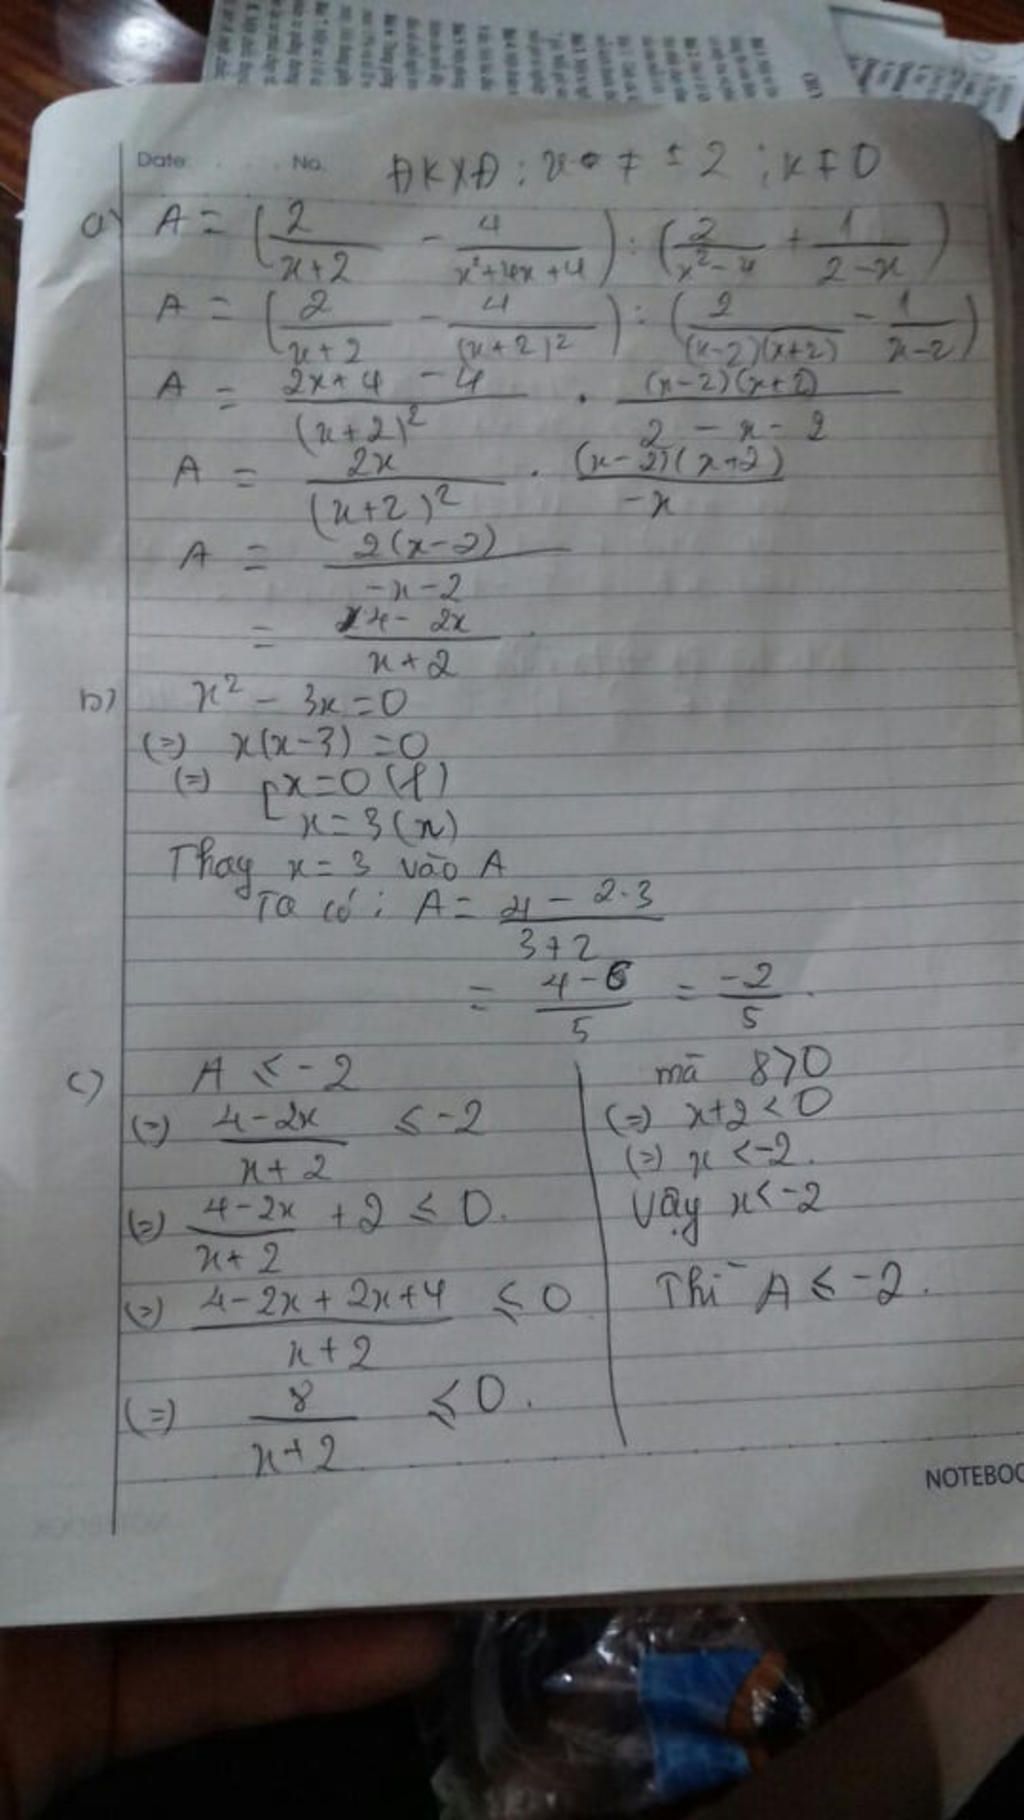 Date No. ĐKXĐ: x ≠ ± 2 ; x ≠ 0
a) A = (2/(x+2) - 4/(x²+4x+4)) : (2/(x²-4) + 1/(2-x))
A = (2/(x+2) - 4/(x+2)²) : (2/((x-2)(x+2)) - 1/(x-2))
A = (2x+4-4)/(x+2)² . ((x-2)(x+2))/(2-x-2)
A = 2x/(x+2)² . ((x-2)(x+2))/(-x)
A = 2(x-2)/(-x-2)
= (4-2x)/(x+2)
b) x² - 3x = 0
(=) x(x-3) = 0
(=) [x=0 (l)
x=3 (n)
Thay x = 3 vào A
Ta có: A = (4-2.3)/(3+2)
= (4-6)/5 = -2/5.
c) A ≤ -2
(=) (4-2x)/(x+2) ≤ -2
(=) (4-2x)/(x+2) + 2 ≤ 0.
(=) (4-2x+2x+4)/(x+2) ≤ 0
(=) 8/(x+2) ≤ 0.
mà 8>0
(=) x+2 < 0
(=) x < -2.
Vậy x < -2
Thì A ≤ -2.
NOTEBOO